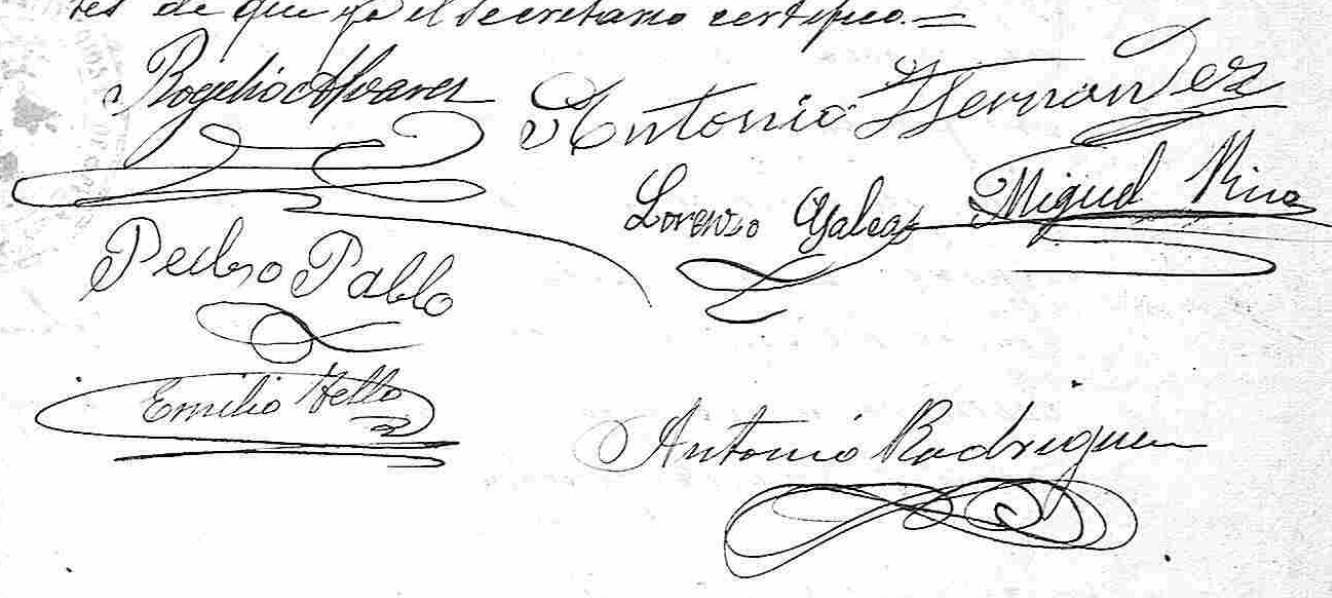 tes de que yo el Secretario certifico.=
Rogelio Alvarez Antonio Hernandez
Lorenzo Galeas Miguel Rina
Pedro Pablo
Emilio Hello
Antonio Rodriguez